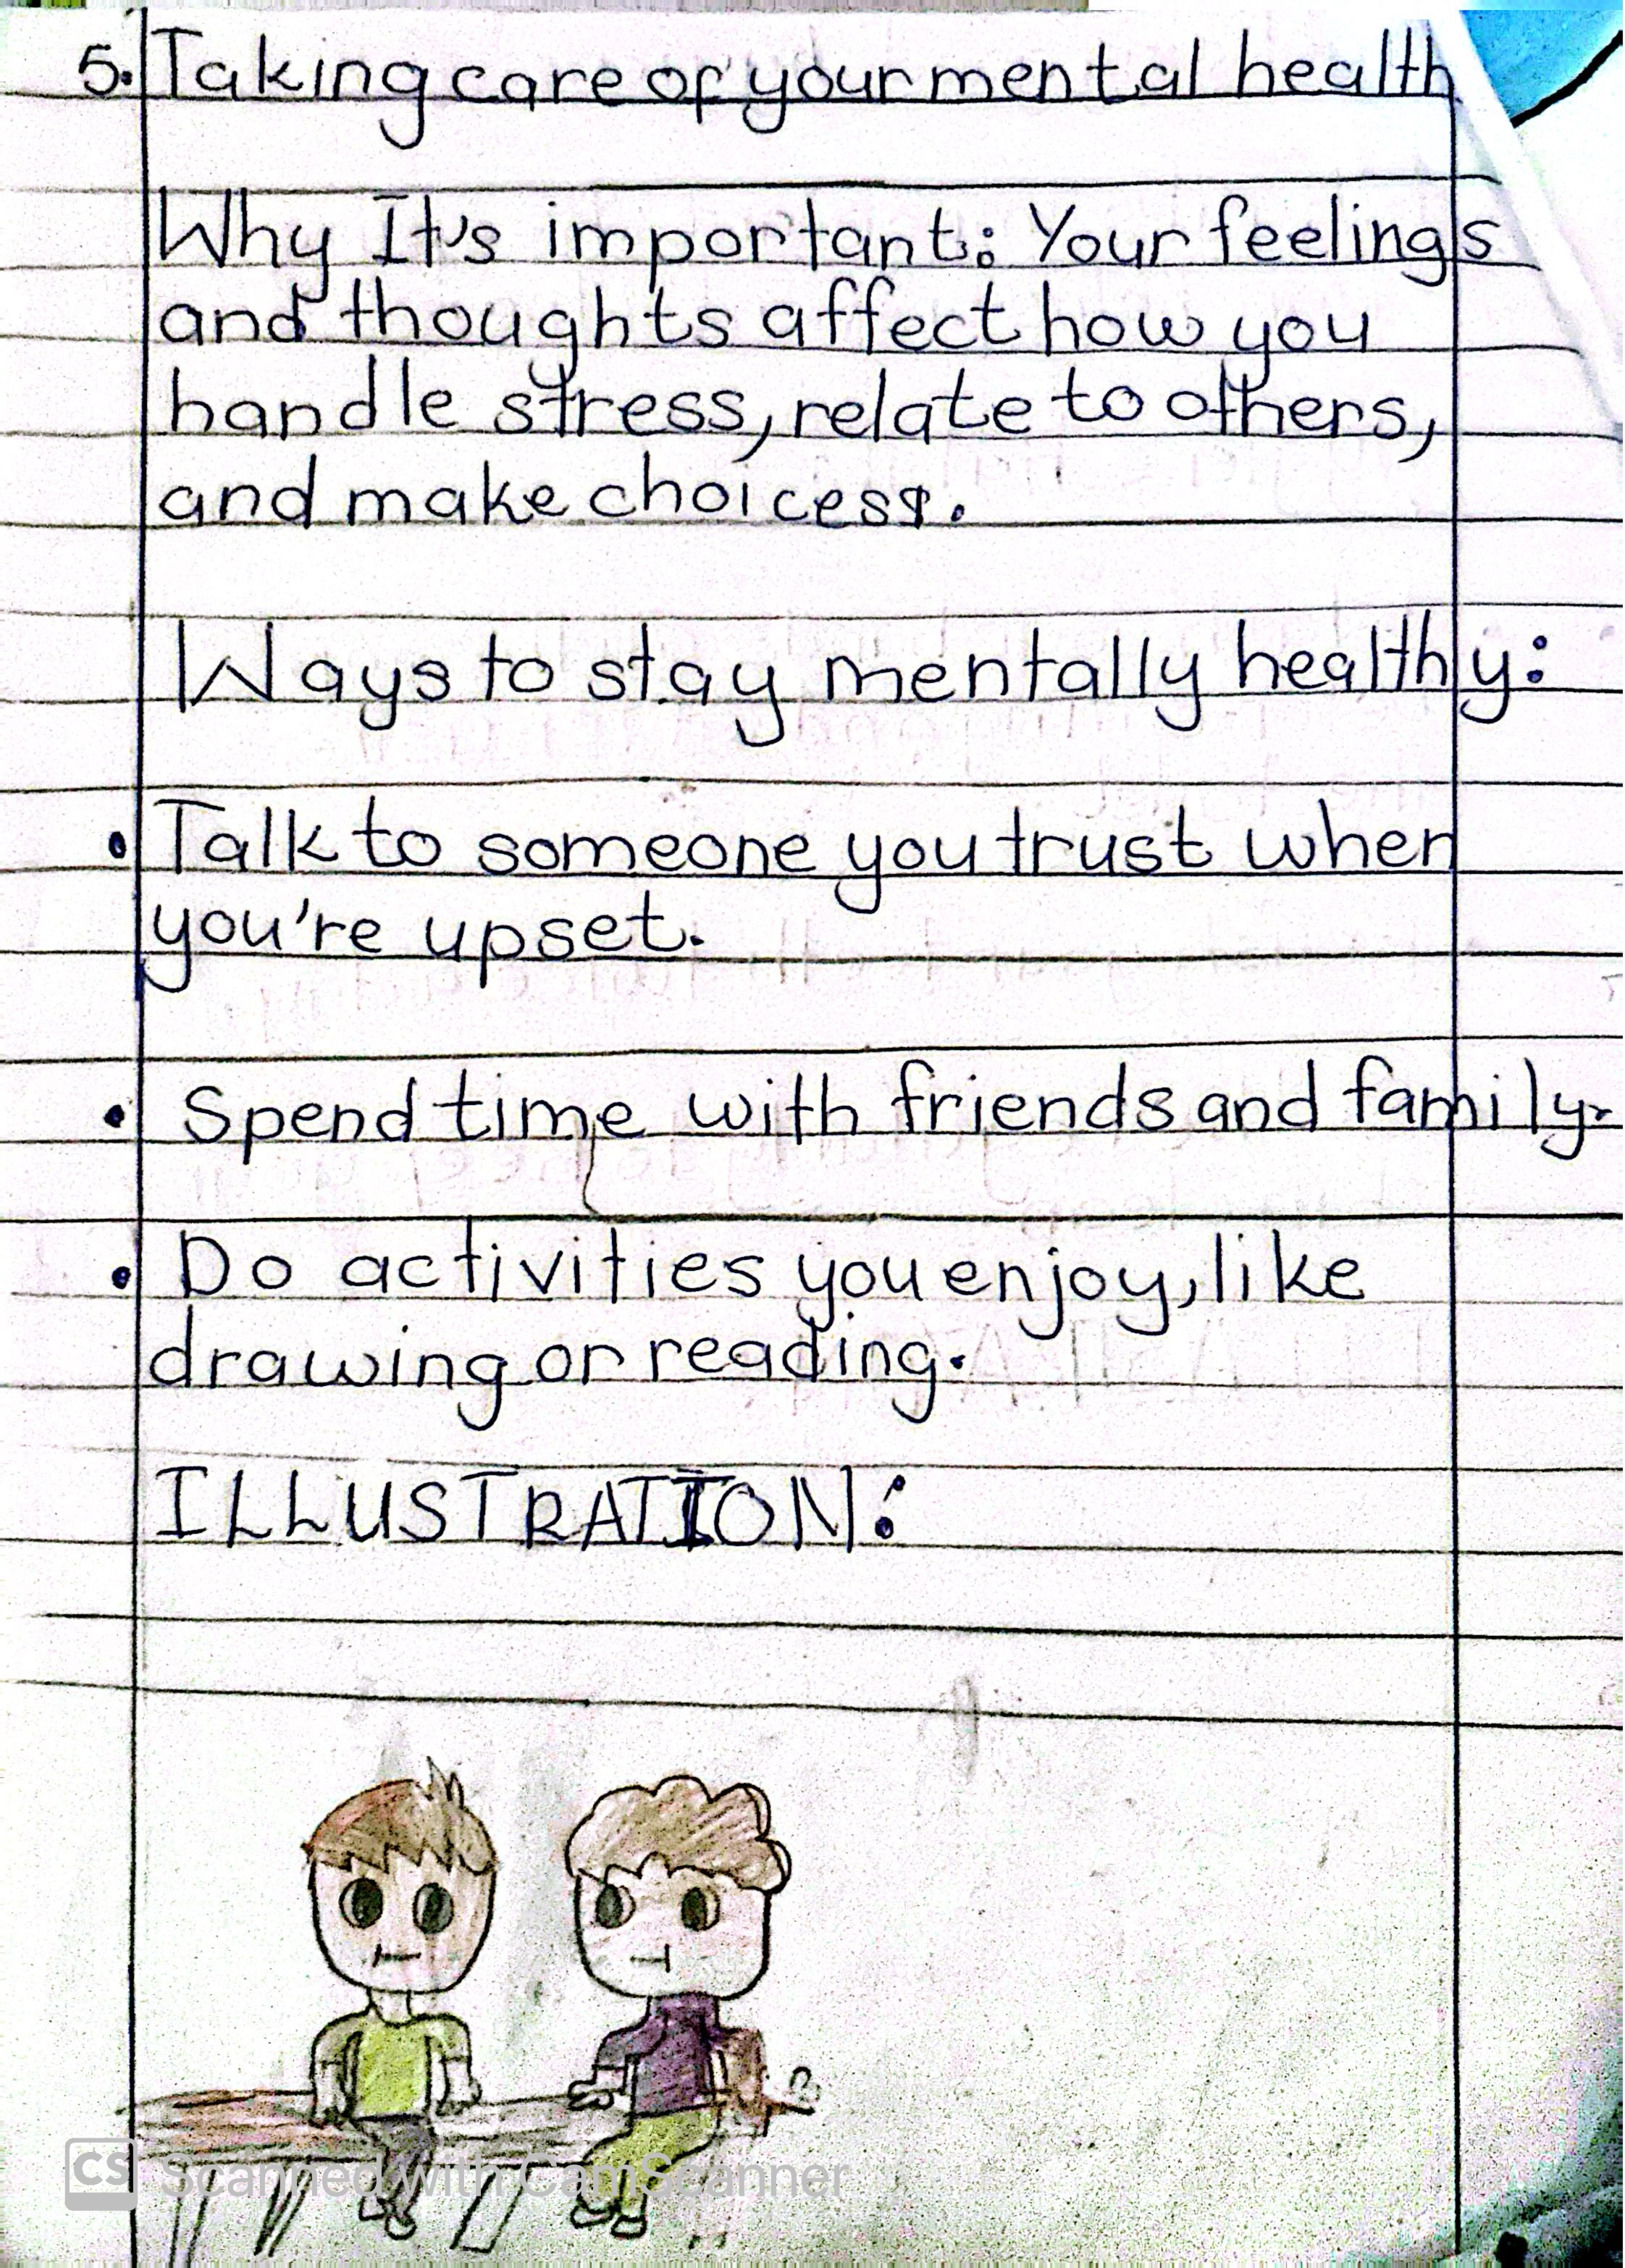 5. Taking care of your mental health
Why It's important: Your feelings
and thoughts affect how you
handle stress, relate to others,
and make choices.
Ways to stay mentally healthy:
• Talk to someone you trust when
you're upset.
• Spend time with friends and family.
• Do activities you enjoy, like
drawing or reading.
ILLUSTRATION:
CS Scanned with CamScanner